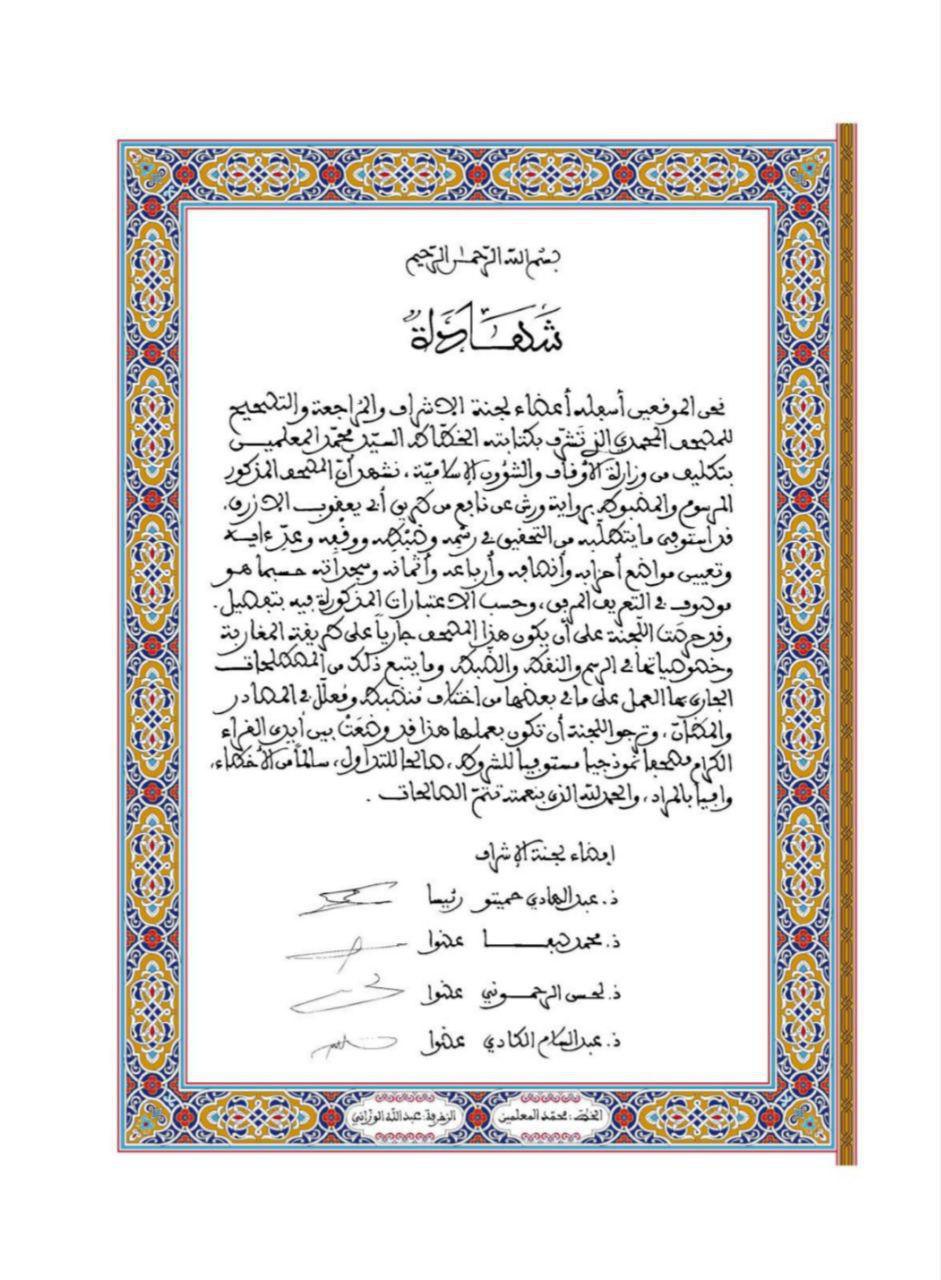 بسم الله الرحمن الرحيم
شَهَادَةٌ
نحن الموقعين أسفله أعضاء لجنة الاشراف والمراجعة والتصحيح
للمصحف المحمدي الذي تَشرَّف بكتابته الخطاط السيد محمد المعلمين
بتكليف من وزارة الأوقاف والشؤون الإسلاميّة، نشهد أنّ المصحف المذكور
المرسوم والمضبوط برواية ورش عن نافع من طريق أبي يعقوب الازرق،
قد استوفى ما يتطلّبه من التحقيق في رسْمِه وضَبْطِه ووقْفِه وعدِّ ءايه
وتعيين مواضع أحزابه وأنصافِه وأرباعه وأثمانه وسجداته حسبما هو
موصوف في التعريف المرفق، وحسب الاعتبارات المذكورة فيه بتفصيل.
وقد حرصَت اللّجنة على أن يكون هذا المصحف جارياً على طريقة المغاربة
وخصوصياتها في الرسم والنقط والضبط وما يتبع ذلك من المصطلحات
الجاري بها العمل على ما في بعضها من اختلاف مُنضبط ومُعلّل في المصادر
والمظانّ، وترجو اللجنة أن تكون بعملها هذا قد وضَعَتْ بين أيدي القراء
الكرام مصحفا نموذجيا مستوفيا للشروط، صالحا للتداول، سالماً من الأخطاء،
وافيا بالمراد، والحمد لله الذي بنعمته تتمّ الصالحات.
إمضاء لجنة الإشراف
ذ. عبد الهادي حميتو رئيسا
ذ. محمد صبعا عضوا
ذ. لحسن الرحموني عضوا
ذ. عبد السلام الكادي عضوا
الخط: محمّد المعلمين الزخرفة: عبد الله الوزاني